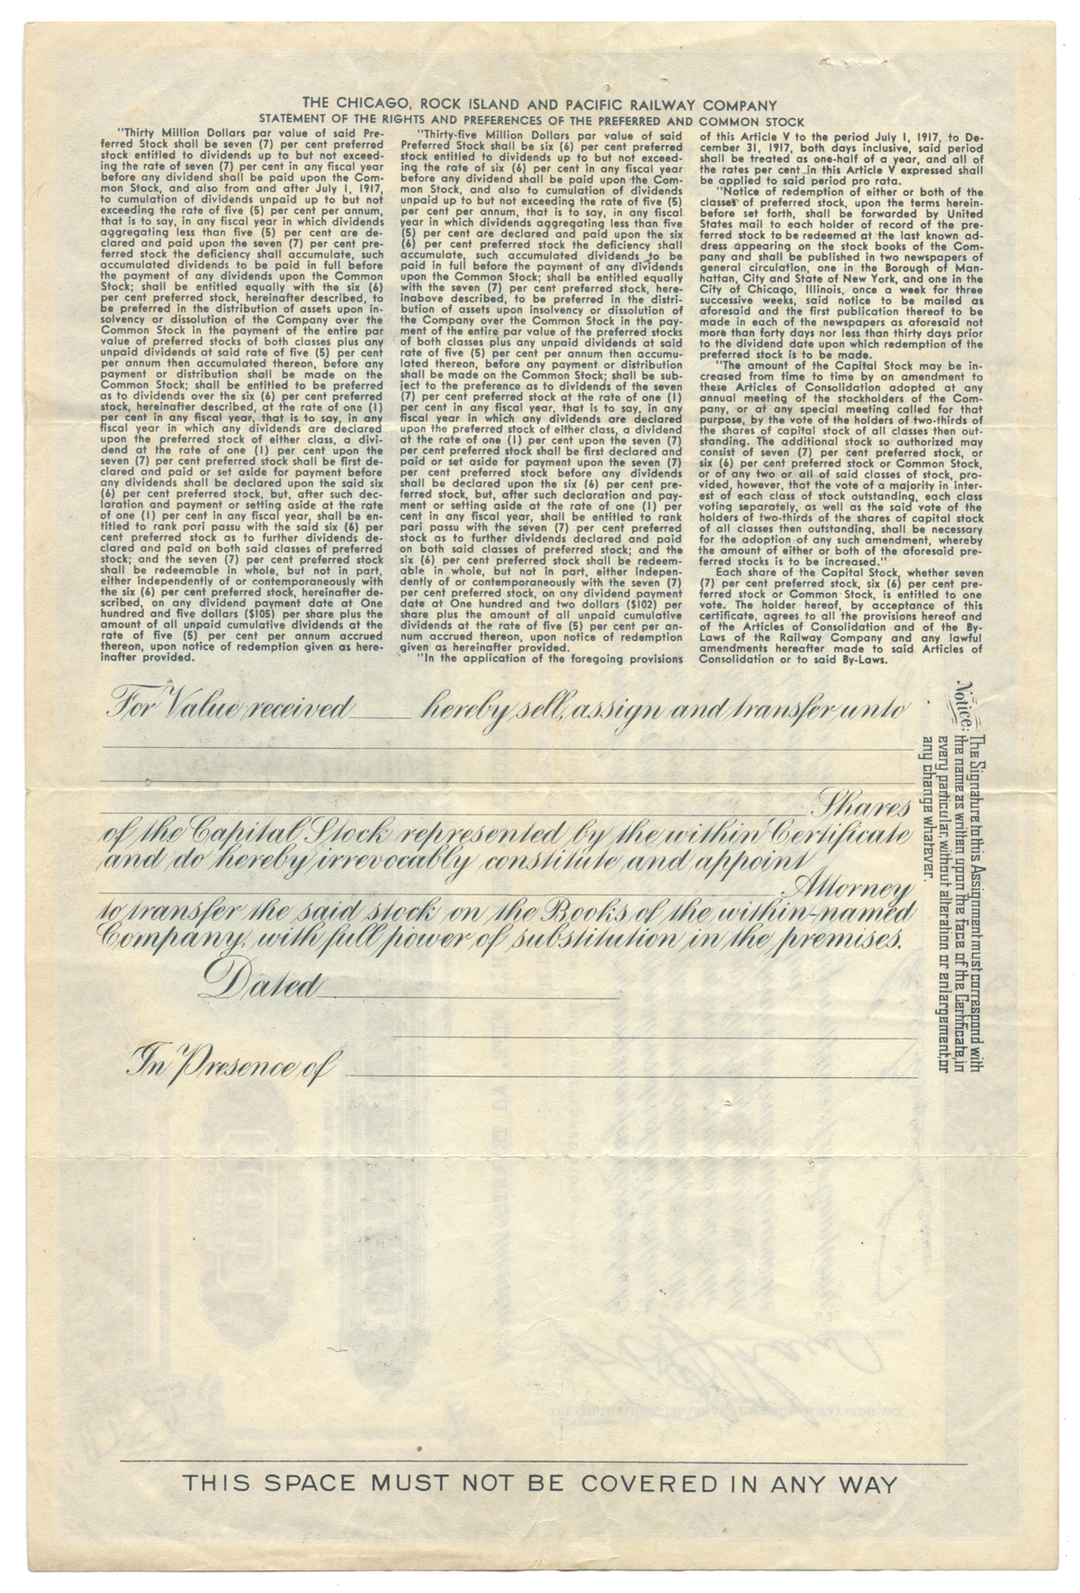 THE CHICAGO, ROCK ISLAND AND PACIFIC RAILWAY COMPANY
STATEMENT OF THE RIGHTS AND PREFERENCES OF THE PREFERRED AND COMMON STOCK
"Thirty Million Dollars par value of said Pre-
ferred Stock shall be seven (7) per cent preferred
stock entitled to dividends up to but not exceed-
ing the rate of seven (7) per cent in any fiscal year
before any dividend shall be paid upon the Com-
mon Stock, and also from and after July 1, 1917,
to cumulation of dividends unpaid up to but not
exceeding the rate of five (5) per cent per annum,
that is to say, in any fiscal year in which dividends
aggregating less than five (5) per cent are de-
clared and paid upon the seven (7) per cent pre-
ferred stock the deficiency shall accumulate, such
accumulated dividends to be paid in full before
the payment of any dividends upon the Common
Stock; shall be entitled equally with the six (6)
per cent preferred stock, hereinafter described, to
be preferred in the distribution of assets upon in-
solvency or dissolution of the Company over the
Common Stock in the payment of the entire par
value of preferred stocks of both classes plus any
unpaid dividends at said rate of five (5) per cent
per annum then accumulated thereon, before any
payment or distribution shall be made on the
Common Stock; shall be entitled to be preferred
as to dividends over the six (6) per cent preferred
stock, hereinafter described, at the rate of one (1)
per cent in any fiscal year, that is to say, in any
fiscal year in which any dividends are declared
upon the preferred stock of either class, a divi-
dend at the rate of one (1) per cent upon the
seven (7) per cent preferred stock shall be first de-
clared and paid or set aside for payment before
any dividends shall be declared upon the said six
(6) per cent preferred stock, but, after such dec-
laration and payment or setting aside at the rate
of one (1) per cent in any fiscal year, shall be en-
titled to rank pari passu with the said six (6) per
cent preferred stock as to further dividends de-
clared and paid on both said classes of preferred
stock; and the seven (7) per cent preferred stock
shall be redeemable in whole, but not in part,
either independently of or contemporaneously with
the six (6) per cent preferred stock, hereinafter de-
scribed, on any dividend payment date at One
hundred and five dollars ($105) per share plus the
amount of all unpaid cumulative dividends at the
rate of five (5) per cent per annum accrued
thereon, upon notice of redemption given as here-
inafter provided.
"Thirty-five Million Dollars par value of said
Preferred Stock shall be six (6) per cent preferred
stock entitled to dividends up to but not exceed-
ing the rate of six (6) per cent in any fiscal year
before any dividend shall be paid upon the Com-
mon Stock, and also to cumulation of dividends
unpaid up to but not exceeding the rate of five (5)
per cent per annum, that is to say, in any fiscal
year in which dividends aggregating less than five
(5) per cent are declared and paid upon the six
(6) per cent preferred stock the deficiency shall
accumulate, such accumulated dividends to be
paid in full before the payment of any dividends
upon the Common Stock; shall be entitled equally
with the seven (7) per cent preferred stock, here-
inabove described, to be preferred in the distri-
bution of assets upon insolvency or dissolution of
the Company over the Common Stock in the pay-
ment of the entire par value of the preferred stocks
of both classes plus any unpaid dividends at said
rate of five (5) per cent per annum then accumu-
lated thereon, before any payment or distribution
shall be made on the Common Stock; shall be sub-
ject to the preference as to dividends of the seven
(7) per cent preferred stock at the rate of one (1)
per cent in any fiscal year, that is to say, in any
fiscal year in which any dividends are declared
upon the preferred stock of either class, a dividend
at the rate of one (1) per cent upon the seven (7)
per cent preferred stock shall be first declared and
paid or set aside for payment upon the seven (7)
per cent preferred stock before any dividends
shall be declared upon the six (6) per cent pre-
ferred stock, but, after such declaration and pay-
ment or setting aside at the rate of one (1) per
cent in any fiscal year, shall be entitled to rank
pari passu with the seven (7) per cent preferred
stock as to further dividends declared and paid
on both said classes of preferred stock; and the
six (6) per cent preferred stock shall be redeem-
able in whole, but not in part, either indepen-
dently of or contemporaneously with the seven (7)
per cent preferred stock, on any dividend payment
date at One hundred and two dollars ($102) per
share plus the amount of all unpaid cumulative
dividends at the rate of five (5) per cent per an-
num accrued thereon, upon notice of redemption
given as hereinafter provided.
"In the application of the foregoing provisions
of this Article V to the period July 1, 1917, to De-
cember 31, 1917, both days inclusive, said period
shall be treated as one-half of a year, and all of
the rates per cent in this Article V expressed shall
be applied to said period pro rata.
"Notice of redemption of either or both of the
classes of preferred stock, upon the terms herein-
before set forth, shall be forwarded by United
States mail to each holder of record of the pre-
ferred stock to be redeemed at the last known ad-
dress appearing on the stock books of the Com-
pany and shall be published in two newspapers of
general circulation, one in the Borough of Man-
hattan, City and State of New York, and one in the
City of Chicago, Illinois, once a week for three
successive weeks, said notice to be mailed as
aforesaid and the first publication thereof to be
made in each of the newspapers as aforesaid not
more than forty days nor less than thirty days prior
to the dividend date upon which redemption of the
preferred stock is to be made.
"The amount of the Capital Stock may be in-
creased from time to time by an amendment to
these Articles of Consolidation adopted at any
annual meeting of the stockholders of the Com-
pany, or at any special meeting called for that
purpose, by the vote of the holders of two-thirds of
the shares of capital stock of all classes then out-
standing. The additional stock so authorized may
consist of seven (7) per cent preferred stock, or
six (6) per cent preferred stock or Common Stock,
or of any two or all of said classes of stock, pro-
vided, however, that the vote of a majority in inter-
est of each class of stock outstanding, each class
voting separately, as well as the said vote of the
holders of two-thirds of the shares of capital stock
of all classes then outstanding, shall be necessary
for the adoption of any such amendment, whereby
the amount of either or both of the aforesaid pre-
ferred stocks is to be increased."
Each share of the Capital Stock, whether seven
(7) per cent preferred stock, six (6) per cent pre-
ferred stock or Common Stock, is entitled to one
vote. The holder hereof, by acceptance of this
certificate, agrees to all the provisions hereof and
of the Articles of Consolidation and of the By-
Laws of the Railway Company and any lawful
amendments hereafter made to said Articles of
Consolidation or to said By-Laws.
For Value received ____ hereby sell, assign and transfer unto
Shares
of the Capital Stock represented by the within Certificate
and do hereby irrevocably constitute and appoint
Attorney
to transfer the said stock on the Books of the within-named
Company, with full power of substitution in the premises.
Dated
In Presence of
Notice: The Signature to this Assignment must correspond with
the name as written upon the face of the Certificate, in
every particular, without alteration or enlargement, or
any change whatever.
THIS SPACE MUST NOT BE COVERED IN ANY WAY